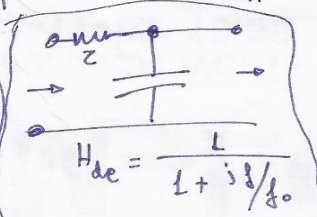 τ
H_de = 1 / (1 + j f/f₀)